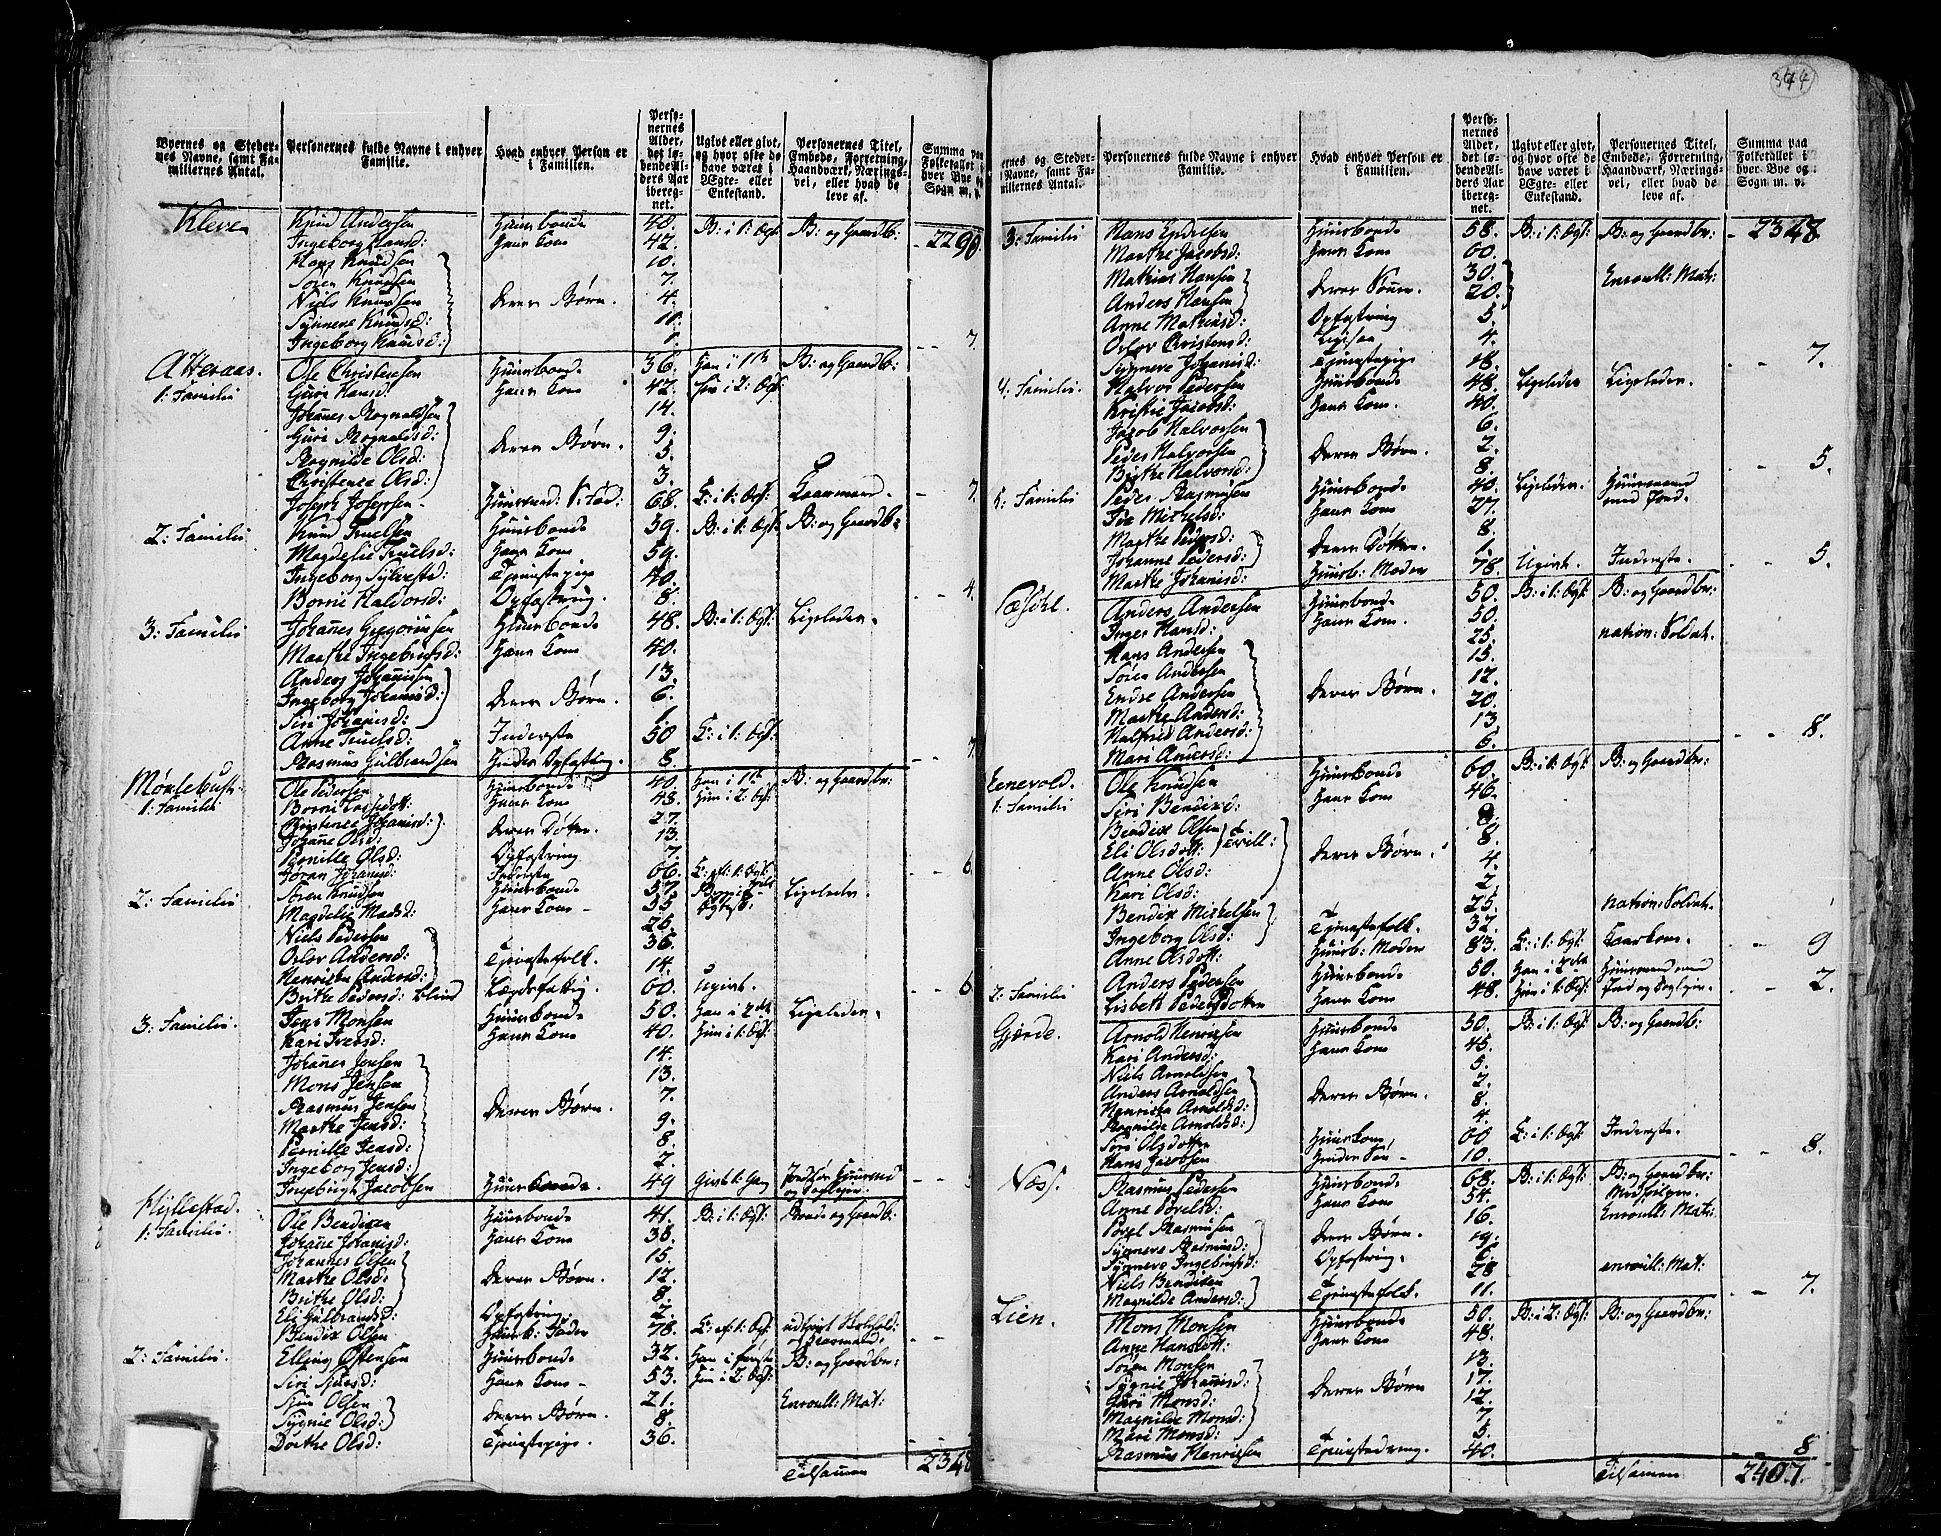 344
Byernes og Stedernes Navne, samt Familiernes Antal.
Personernes fulde Navne i enhver Familie.
Hvad enhver Person er i Familien.
Personernes Alder, det løbende Alders Aar iberegnet.
Ugivt eller givt, og hvor ofte de have været i Ægte- eller Enkestand.
Personernes Titel, Embede, Forretning, Haandværk, Næringsvei, eller hvad de leve af.
Summa paa Folketallet i
Kleven Knud Andersen Huusbonde 40. B: i 1: Ægt: B: og Gaardb: 2290
Ingeborg Hansd: Hans Kone 42.
Hans Knudsen 10.
Søren Knudsen 7.
Niels Knudsen deres Børn. 4.
Synneve Knudsd:
Ingeborg Knudsd: 1. 7.
Atteraas. Ole Christensen Huusbonde 36. Han i 1te B: og Gaardb:
1: Familie Guri Hansd: Hans Kone 42. Hun i 2: Ægt
Johanes Rognaldsen 14.
Guri Rognaldsd: deres Børn. 9.
Rognilde Olsd: 5.
Christence Olsd: 3.
Joseph Josephsen 68. E: i 1: Ægt: Kaarmand. 7.
2: Familie Knud Truelsen Huusbonde 59. B: i 1: Ægt B: og Gaardb:
Magdelie Truelsd: Hans Kone 59.
Ingeborg Sylvestd: Tjenestepige 40.
Borni Haldorsd: Opfostring. 8. 4.
3: Familie Johanes Gregoriusen Huusbonde 48. B: i 1: Ægt: Ligeleder.
Marthe Ingebrigtsd: Hans Kone 40.
Anders Johanisen 13.
Ingeborg Johanisd: deres Børn. 6.
Siri Johanisd: 1.
Anne Truelsd: Inderste 50 E: i 1: Ægt:
Rasmus Gulbrandsen Under Opfostring. 8. 7.
1: Familie Ole Pedersen Huusbonde 40. Han i 1te B: og Gaardbr:
Hans Kone 43. Hun i 2: Ægt:
Christence Johanisd: 27.
Johane Olsd: deres Døttre. 13.
Pernille Olsd: Opfostring 7
Joran Johanisd: Inderste 66. 6.
2: Familie Søren Knudsen Huusbonde 57. Ligeleder.
Magdelie Madsd: Hans Kone 55
Niels Pedersen 26.
Orlov Andersd: Tjenestefolk. 36.
Henricka Andersd: 14.
Brithe Pedersd: blind Lægdsfattig. 60. Ugivt. 6.
3: Familie. Jens Monsen Huusbonde 50. Han i 2 det Ligeleder.
Kari Iversd: Hans Kone 40. Hun i 1: Ægt
Johanes Jensen 14.
Mons Jensen 13.
Rasmus Jensen deres Børn. 7.
Marthe Jensd: 9.
Pernille Jensd: 8.
Ingeborg Jensd: 2.
Ingebrigt Jacobsen Huusbonde. 49 Givt 1: Gang
Hyllestad.
1: Familie Ole Bendixen Huusbonde 41. B: i 1: Ægt: Bonde og Gaardb:
Johane Johanisd: Hans Kone 38.
Johannes Olsen 15.
Marthe Olsd: deres Børn. 12.
Brithe Olsd: 8.
Eli Gulbrandsd: Opfostring. 2.
Bendix Olsen Huusb: Fader 78. E: af 1: Ægt
2: Familie. Elling Østensen Huusbonde 32. Han i første B: og Gaardbr:
Siri Siursd: Hans Kone 53. Hun i 2: Ægt
Siur Olsen 21. Enroull: Mat:
Sygnie Olsd: deres Børn. 8.
Dorthe Olsd: Tjenestepige. 36.
Tilsamen 2348
Byernes og Stedernes Navne, samt Familiernes Antal.
Personernes fulde Navne i enhver Familie.
Hvad enhver Person er i Familien.
Personernes Alder, det løbende Alders Aar iberegnet.
Ugivt eller givt, og hvor ofte de have været i Ægte- eller Enkestand.
Personernes Titel, Embede, Forretning, Haandværk, Næringsvei, eller hvad de leve af.
Summa paa Folketallet i hver Bye og Sogn m. v.
3: Familie Hans Endresen Huusbonde 58. B: i 1: Ægt: B: og Gaardbr: 2348
Marthe Jacobsd: Hans Kone 60.
Mathias Hansen deres Sønner. 30. Enroull: Mat:
Anders Hansen 20.
Anne Mathiasd: Opfostring 5
Orlov Christensd: Ligesaa 4.
Synneve Johanisd: Tjenestepige 18. 7.
4: Familie Halvor Pedersen Huusbonde 48. Ligeleder Ligeleder.
Kristie Jacobsd: Hans Kone. 40.
Jacob Halvorsen 6.
Peder Halvorsen deres Børn. 2.
Birthe Halvorsd: 8. 5.
5: Familie Peder Rasmusen Huusbonde 40. Ligeleder. Huusmand med Jord.
Ida Mickelsd: Hans Kone 27.
Marthe Pedersd: deres Døttre. 8.
Johanne Pedersd: 1.
Marthe Johanisd: Huusb: Moder 78. Ugivt. Inderste. 5.
Anders Andersen Huusbonde 50. B: i 1: Ægt: B: og Gaardbr:
Inger Hansd: Hans Kone. 50.
Hans Andersen 25. nation: Soldat.
Søren Andersen 15.
Endre Andersen deres Børn. 12.
Marthe Andersd: 20.
Halfrid Andersd: 13.
Mari Andersd: 6. 8.
Eenevold. Ole Knudsen Huusbonde 60. B: i 1: Ægt: B: og Gaardbr:
1: Familie Siri Bendixd: Hans Kone 46.
Bendix Olsen Tvill: 8.
Eli Olsdott: deres Børn. 8.
Anne Olsd: 4.
Kari Olsd: 2.
Bendix Mickelsen 25. nation: Soldat.
Ingeborg Olsd: Tjenestefolk. 32.
Anne Olsdott: Huusb: Moder 83. E: i 1: Ægt: Kaarkone. 9
2: Familie Anders Pedersen Huusbonde 50. Han i 2 det Huusmand med
Lisbeth Pedersdotter Hans Kone 48. Hun i 1: Ægt: 2.
Gjerde. Arnold Henricsen Huusbonde 50. B: i 1: Ægt B: og Gaardb:
Kari Andersd: Hans Kone 45.
Niels Arnoldsen 5.
Anders Arnoldsen deres Børn. 2.
Henricka Arnoldsd: 8.
Rognilde Arnoldsd: 4.
Siri Olsdotter Huuskone 60 E: i 1: Ægt: Inderste.
Hans Jacobsen Hendes Søn 10. 8.
Næss. Rasmus Pedersen Huusbonde 68. B: i 1: Ægt: B: og Gaardbr:
Anne Povelsd: Hans Kone 54.
Povel Rasmusen deres Børn. 16. Enroull: Mat:
Synneve Rasmusd: 19.
Synneve Ingebrigtsd: Opfostring. 6.
Niels Bendixen Tjenestefolk. 28 enroull: Mat:
Magnilde Andersd: 11. 7.
Lien. Mons Monsen Huusbonde 50. B: i 2: Ægt: B: og Gaardbr:
Anne Hansdott: Hans Kone 48.
Søren Monsen 13.
Sygnie Johanisd: deres Børn 17.
Guri Monsd: 12.
Magnilde Monsd: 7
Mari Monsd: 5.
Rasmus Henricsen Tjenestedreng. 40. 8
Tilsamen 2407.